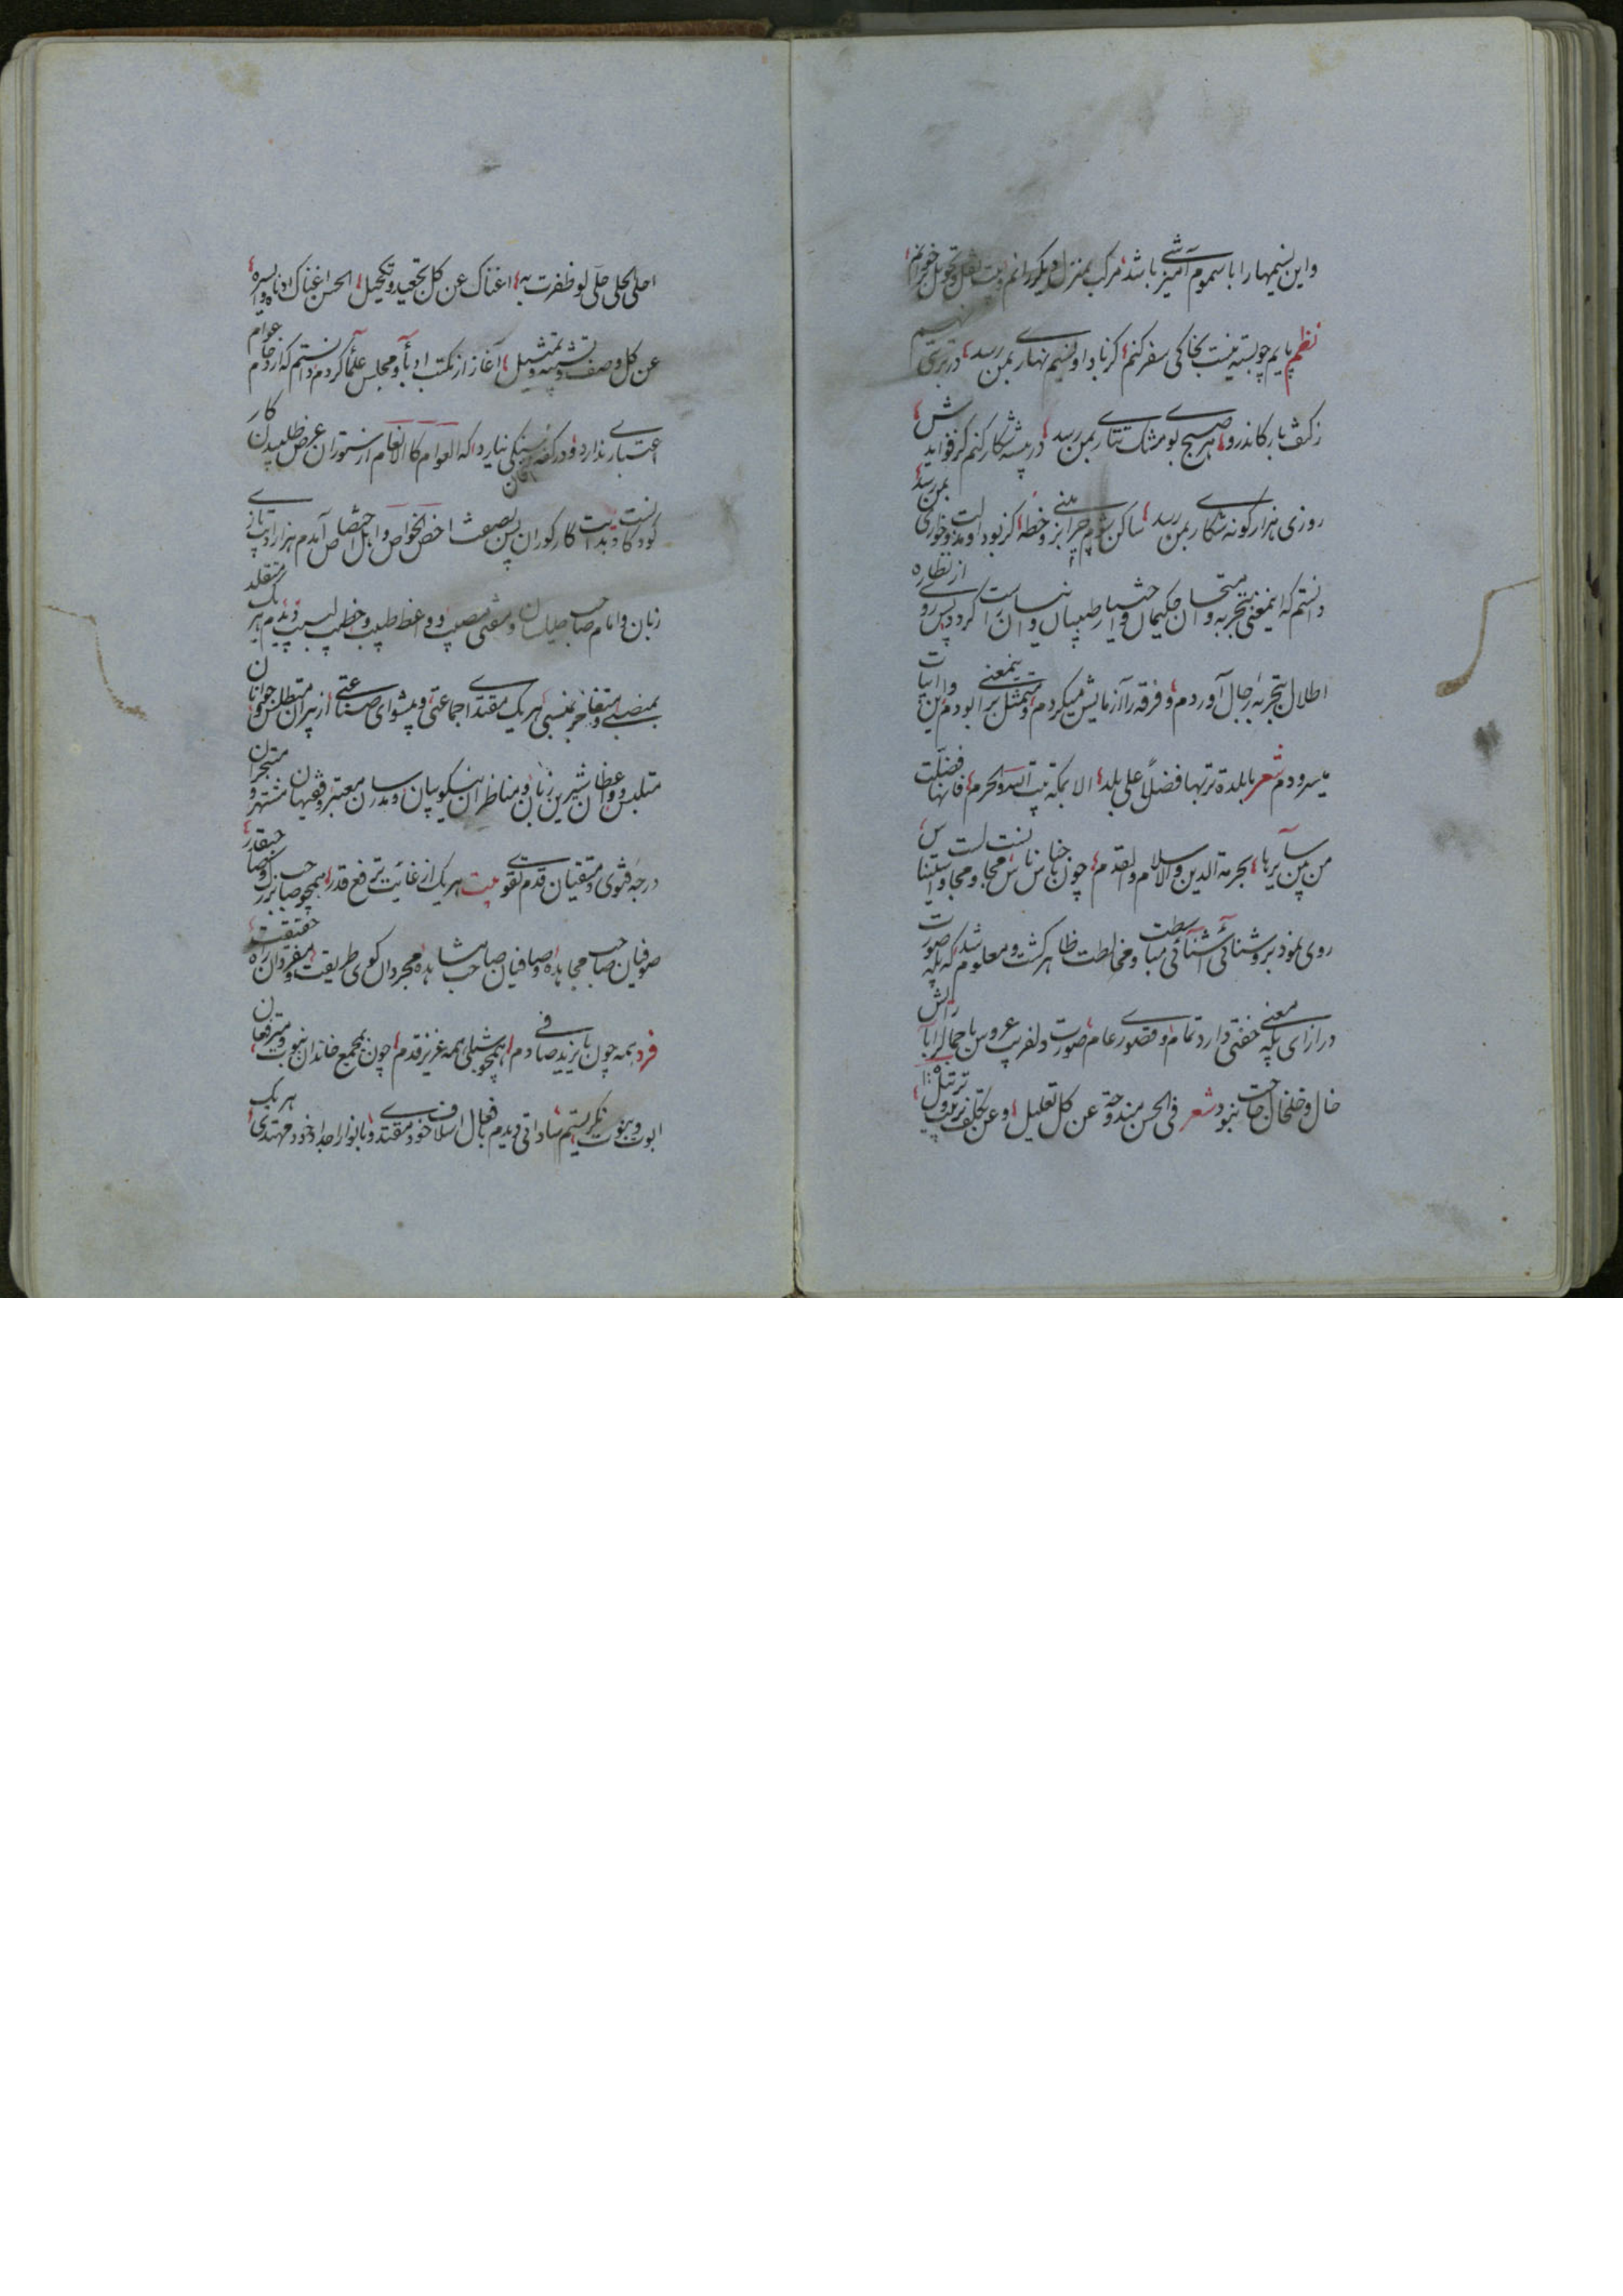 و این نسیمها را با سموم آمیزشی باشد مرکب بمنزل دیگر رانم و بیت نقل و تحویل بر خوانم
نظم پایم چو بسته نیست بخاکی سفر کنم کز باد او نسیم بهاری بمن رسد در تربتی نهم
ز کف بار کاندرو هر صبح بوی مشک تتاری بمن رسد در بیشه شکار کنم کز فوایدش
روزی هزار گونه شکاری بمن رسد ساکن چرا شوم بزمینی و خطه کز بود او مذلت و خواری بمن رسد
دانستم که اینمعنی بتجربه و امتحان حکیمان و اختیار طبیبان راست نیاید و آن کرد پس روی از نظاره
اطلال بتجربه رجال آوردم و فرقه را آزمایش میکردم و متمثل بدینمعنی بودم و این ابیات
میسرودم شعر یا بلدة تربها فضلا علی بلد الا بمکة بیت الله والحرم فانها فضلت
من بین سایرها بحرمة الدین والاسلام والقدم چون جناس ناس مجالست و مجاورت و استیناس
روی نمود بروشنائی آشنائی مباسطت و مخالطت ظاهر گشت و معلوم شد که بلده صورت
در ازای بلده معنی خفتی دارد تمام و قصوری عام صورت دلفریب عروس با جمال را بآرایش
خال و خلخال حاجت نبود شعر فی الحسن مندوحة عن کل تعلیل و عن تکلف تزیین و ترتیل
احلی الحلی حلی لو ظفرت به اغناک عن کل تجعید و تکحیل الحسن اغناک ادناه و ایسره
عن کل وصف و تشبیه و تمثیل آغاز از مکتب ادبا و مجلس علما کردم و دانستم که ازدحام عوام
اعتباری ندارد و در کفه سنگی نیارد که العوام کالانعام از ستوران عرض طلبیدن کار
کودکانست و بدایت کار کوران پس بصف اخص الخواص و اهل اختصاص آمدم هزار ادیب تازی
زبان و امام صاحب طیلسان و مفتی مصیب و واعظ طبیب و خطیب لبیب دیدم هر یک متقلد
بمنصبی و متفاخر بنسبی هر یک مقتدای جماعتی و پیشوای صناعتی از پیران متطلس و جوانان
متلبس و واعظان شیرین زبان و مناظران نیکو بیان و مدرسان معتبر و فقیهان مشتهر و متبحران
درجه فتوی و متقیان قدم تقوی بیت هر یک از غایت ترفع قدر همچو صاحب بزرگ و صاحبقدر
صوفیان صاحب مجاهده و صافیان صاحب مشاهده مجردان کوی طریقت و مفردان راه حقیقت
فرد همه چون بایزید صافی دم همچو شبلی همه عزیز قدم چون بمجمع خاندان نبوت و مترفعان
ابوت و بنوت نگریستم ساداتی دیدم بافعال اسلاف خود مقتدی و بانوار اجداد خود مهتدی هر یک